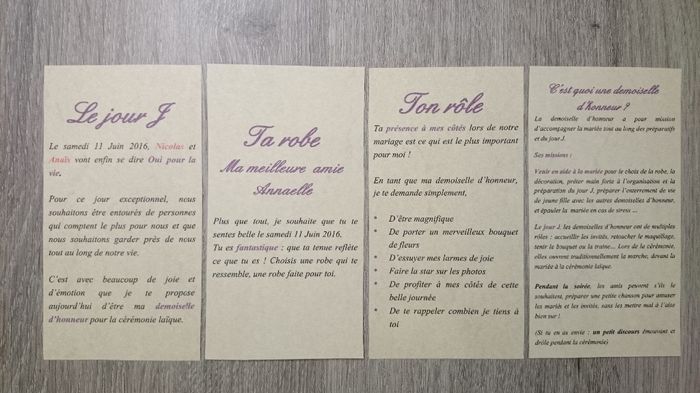 Le jour J
Le samedi 11 Juin 2016, Nicolas et
Anaïs vont enfin se dire Oui pour la
vie.
Pour ce jour exceptionnel, nous
souhaitons être entourés de personnes
qui comptent le plus pour nous et que
nous souhaitons garder près de nous
tout au long de notre vie.
C'est avec beaucoup de joie et
d'émotion que je te propose
aujourd'hui d'être ma demoiselle
d'honneur pour la cérémonie laïque.
Ta robe
Ma meilleure amie
Annaelle
Plus que tout, je souhaite que tu te
sentes belle le samedi 11 Juin 2016,
Tu es fantastique : que ta tenue reflète
ce que tu es ! Choisis une robe qui te
ressemble, une robe faite pour toi.
Ton rôle
Ta présence à mes côtés lors de notre
mariage est ce qui est le plus important
pour moi !
En tant que ma demoiselle d'honneur,
je te demande simplement,
• D'être magnifique
• De porter un merveilleux bouquet
de fleurs
• D'essuyer mes larmes de joie
• Faire la star sur les photos
• De profiter à mes côtés de cette
belle journée
• De te rappeler combien je tiens à
toi
C'est quoi une demoiselle
d'honneur ?
La demoiselle d'honneur a pour mission
d'accompagner la mariée tout au long des préparatifs
et du jour J.
Ses missions :
Venir en aide à la mariée pour le choix de la robe, la
décoration, prêter main forte à l'organisation et la
préparation du jour J, préparer l'enterrement de vie
de jeune fille avec les autres demoiselles d'honneur,
et épauler la mariée en cas de stress ...
Le jour J, les demoiselles d'honneur ont de multiples
rôles : accueillir les invités, retoucher le maquillage,
tenir le bouquet ou la traîne... Lors de la cérémonie,
elles ouvrent traditionnellement la marche, devant la
mariée à la cérémonie laïque.
Pendant la soirée, les amis peuvent s'ils le
souhaitent, préparer une petite chanson pour amuser
les mariés et les invités, sans les mettre mal à l'aise
bien sur !
(Si tu en as envie : un petit discours émouvant et
drôle pendant la cérémonie)